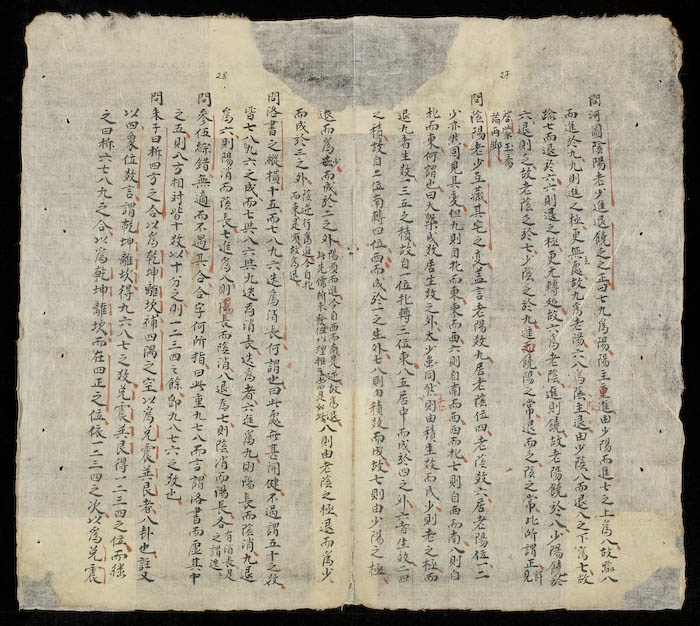 27
問河圖陰陽老少進退饒乏之正曰七九爲陽陽主進由少陽而進七之上爲八故踰八
而進於九九則進之極更無處故九爲老陽六八爲陰陰主退由少陰八而退八之下爲七故
踰七而退於六六則退之極更无轉處故六爲老陰進則饒故老陽饒於八少陽饒於
六退則乏故老陰乏於七少陰乏於九進而饒陽之常退而乏陰之常此所謂正見
問陰陽老少互藏其宅之變盖言老陽數九居老陰位四老陰數六居老陽位一二
少亦然固見其變但九則自北而東東而西六則自南而西西而北七則自西而南八則自
北而東何謂也曰大槩成數居生數之外太少患同然則由積生數而成少則老之極而
退九者生數一三五之積故自一位北轉三位東八五居中而成於四之外六者生數二四
之積故自二位南轉四位西而成於一之生外七八則由積數而成故七則由少陽之極
28
退而爲少而成於二之外
八則由老陰之極退而爲少
而成於三之外
問洛書之縱橫十五而七八九六迭爲消長何謂也曰此處毎甚開健不過謂五十之數
皆七八九六之成而七與八六與九迭爲消長迭爲者六進爲九則陽長而陰消九退
爲六則陽消而陰長七進爲八則陽長而陰消八退爲七則陰消而陽長各
問參伍綜錯無適而不遇其合合字何所指曰此重九七八而言謂洛書而虛其中
之五則八方相對皆十數以十分之則一二三四之餘即九八七六之數也
問朱子曰析四方之合以爲乾坤離坎補四隅之空以爲兌震巽艮者八卦也註又
以四象位數言謂乾坤離坎得九六八七之數兌震巽艮得一二三四之位而繼
之曰析六七八九之合以爲乾坤離坎而在四正之位依一二三四之次以爲兌震